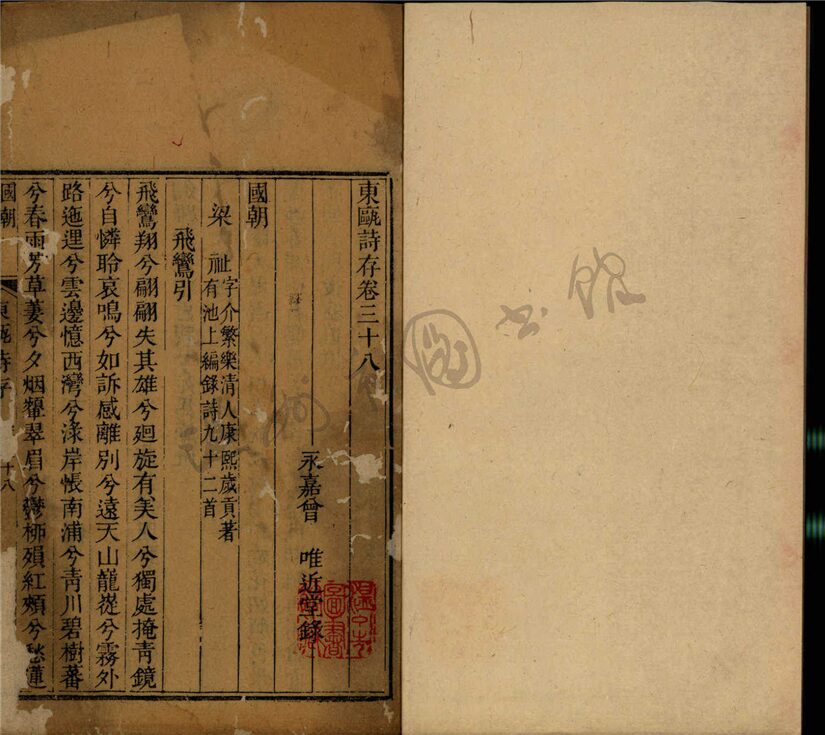 東甌詩存卷三十八
永嘉曾 唯近堂錄
國朝
梁 祉字介繁樂清人康熙歲貢著
有池上編錄詩九十二首
飛鸞引
飛鸞翔兮翩翩失其雄兮廻旋有美人兮獨處掩青鏡
兮自憐聆哀鳴兮如訴感離別兮遠天山巃嵸兮霧外
路迤逕兮雲邊憶西灣兮淥岸悵南浦兮青川碧樹蕃
兮春雨芳草萋兮夕烟顰翠眉兮 柳殞紅頰兮愁蓮
國朝
東甌詩存
十八